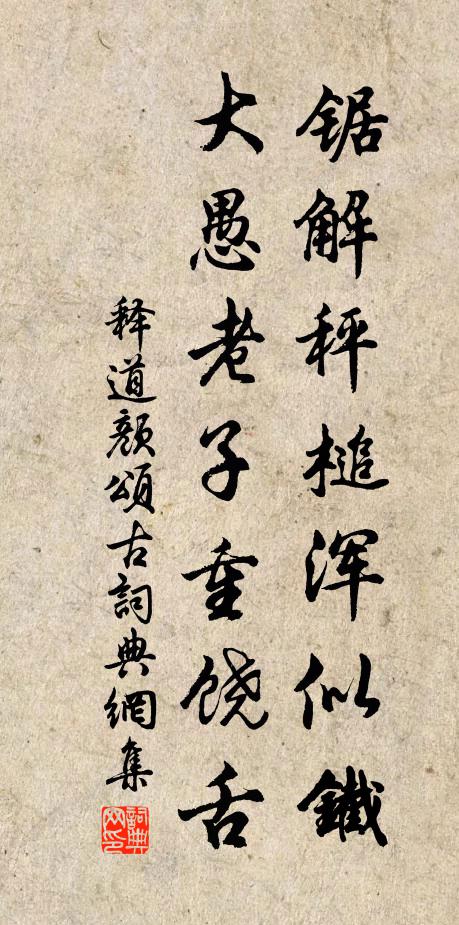 锯解秤槌浑似鐵
大愚老子重饶舌
释道颜頌古詞典網集
詞典網印